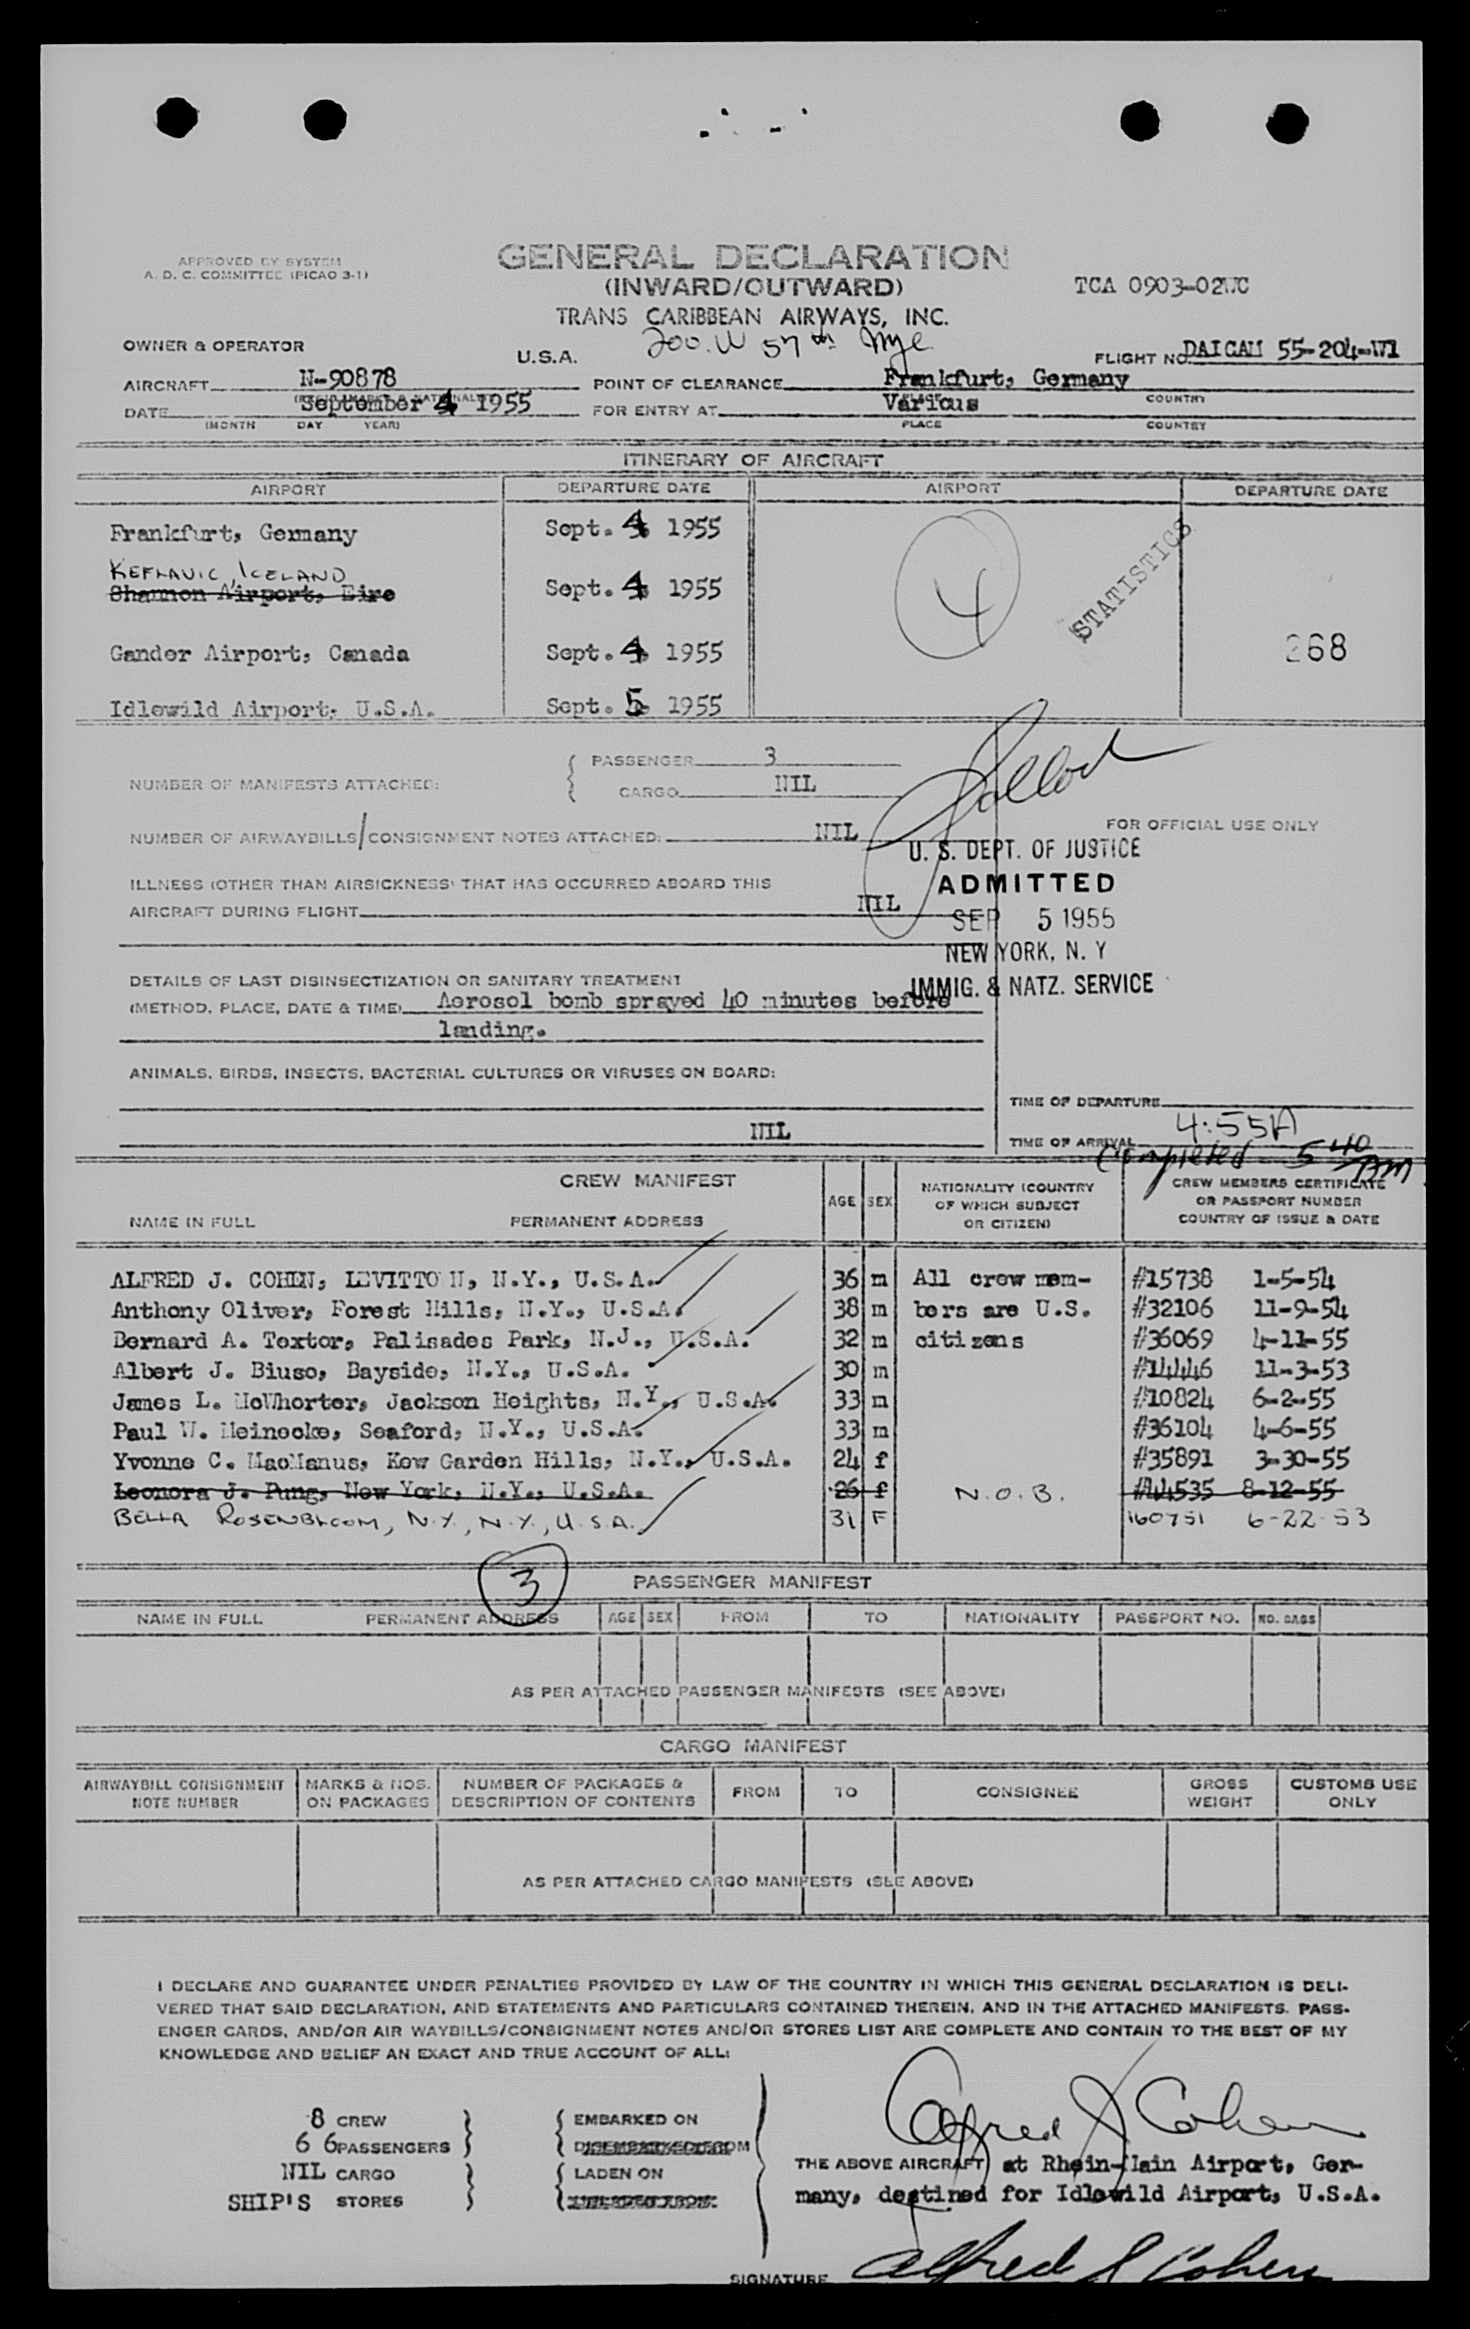 APPROVED BY SYSTEM
A. D. C. COMMITTEE (PICAO 3-1)
GENERAL DECLARATION
(INWARD/OUTWARD)
TCA 0903-02WC
TRANS CARIBBEAN AIRWAYS, INC.
OWNER & OPERATOR
U.S.A.
200. W 57th Nyc
FLIGHT NO DAICAM 55-204-W1
AIRCRAFT N-90878
POINT OF CLEARANCE Frankfurt, Germany
DATE September 4 1955
FOR ENTRY AT Various
PLACE COUNTRY
(MONTH DAY YEAR)
PLACE COUNTRY
ITINERARY OF AIRCRAFT
AIRPORT DEPARTURE DATE AIRPORT DEPARTURE DATE
Frankfurt, Germany Sept. 4 1955
KEFLAVIC, ICELAND
Shannon Airport, Eire Sept. 4 1955
4 STATISTICS
Gander Airport, Canada Sept. 4 1955
268
Idlewild Airport, U.S.A. Sept. 5 1955
NUMBER OF MANIFESTS ATTACHED:
PASSENGER 3
CARGO NIL
NUMBER OF AIRWAYBILLS/CONSIGNMENT NOTES ATTACHED: NIL
FOR OFFICIAL USE ONLY
U. S. DEPT. OF JUSTICE
ADMITTED
SEP 5 1955
NEW YORK, N. Y
IMMIG. & NATZ. SERVICE
ILLNESS (OTHER THAN AIRSICKNESS) THAT HAS OCCURRED ABOARD THIS
AIRCRAFT DURING FLIGHT NIL
DETAILS OF LAST DISINSECTIZATION OR SANITARY TREATMENT
(METHOD, PLACE, DATE & TIME) Aerosol bomb sprayed 40 minutes before
landing.
ANIMALS, BIRDS, INSECTS, BACTERIAL CULTURES OR VIRUSES ON BOARD:
NIL
TIME OF DEPARTURE
TIME OF ARRIVAL 4:55A
Completed 5 40 AM
CREW MANIFEST
NAME IN FULL PERMANENT ADDRESS
AGE SEX
NATIONALITY (COUNTRY
OF WHICH SUBJECT
OR CITIZEN)
CREW MEMBERS CERTIFICATE
OR PASSPORT NUMBER
COUNTRY OF ISSUE & DATE
ALFRED J. COHEN, LEVITTO N, N.Y., U.S.A. 36 m All crew mem- #15738 1-5-54
Anthony Oliver, Forest Hills, N.Y., U.S.A. 38 m bers are U.S. #32106 11-9-54
Bernard A. Textor, Palisades Park, N.J., U.S.A. 32 m citizens #36069 4-11-55
Albert J. Biuso, Bayside, N.Y., U.S.A. 30 m #14446 11-3-53
James L. McWhorter, Jackson Heights, N.Y., U.S.A. 33 m #10824 6-2-55
Paul W. Meinecke, Seaford, N.Y., U.S.A. 33 m #36104 4-6-55
Yvonne C. MacManus, Kew Garden Hills, N.Y., U.S.A. 24 f #35891 3-30-55
Leonora J. Pung, New York, N.Y., U.S.A. 26 f N.O.B. #44535 8-12-55
BELLA ROSENBLOOM, N.Y., N.Y., U.S.A. 31 F 160751 6-22-53
3
PASSENGER MANIFEST
NAME IN FULL PERMANENT ADDRESS AGE SEX FROM TO NATIONALITY PASSPORT NO. NO. BAGS
AS PER ATTACHED PASSENGER MANIFESTS (SEE ABOVE)
CARGO MANIFEST
AIRWAYBILL CONSIGNMENT
NOTE NUMBER
MARKS & NOS.
ON PACKAGES
NUMBER OF PACKAGES &
DESCRIPTION OF CONTENTS
FROM TO CONSIGNEE
GROSS
WEIGHT
CUSTOMS USE
ONLY
AS PER ATTACHED CARGO MANIFESTS (SEE ABOVE)
I DECLARE AND GUARANTEE UNDER PENALTIES PROVIDED BY LAW OF THE COUNTRY IN WHICH THIS GENERAL DECLARATION IS DELI-
VERED THAT SAID DECLARATION, AND STATEMENTS AND PARTICULARS CONTAINED THEREIN, AND IN THE ATTACHED MANIFESTS. PASS-
ENGER CARDS, AND/OR AIR WAYBILLS/CONSIGNMENT NOTES AND/OR STORES LIST ARE COMPLETE AND CONTAIN TO THE BEST OF MY
KNOWLEDGE AND BELIEF AN EXACT AND TRUE ACCOUNT OF ALL:
8 CREW
6 6 PASSENGERS
NIL CARGO
SHIP'S STORES
EMBARKED ON
LADEN ON
Alfred J Cohen
THE ABOVE AIRCRAFT at Rhein-Main Airport, Ger-
many, destined for Idlewild Airport, U.S.A.
SIGNATURE Alfred J Cohen